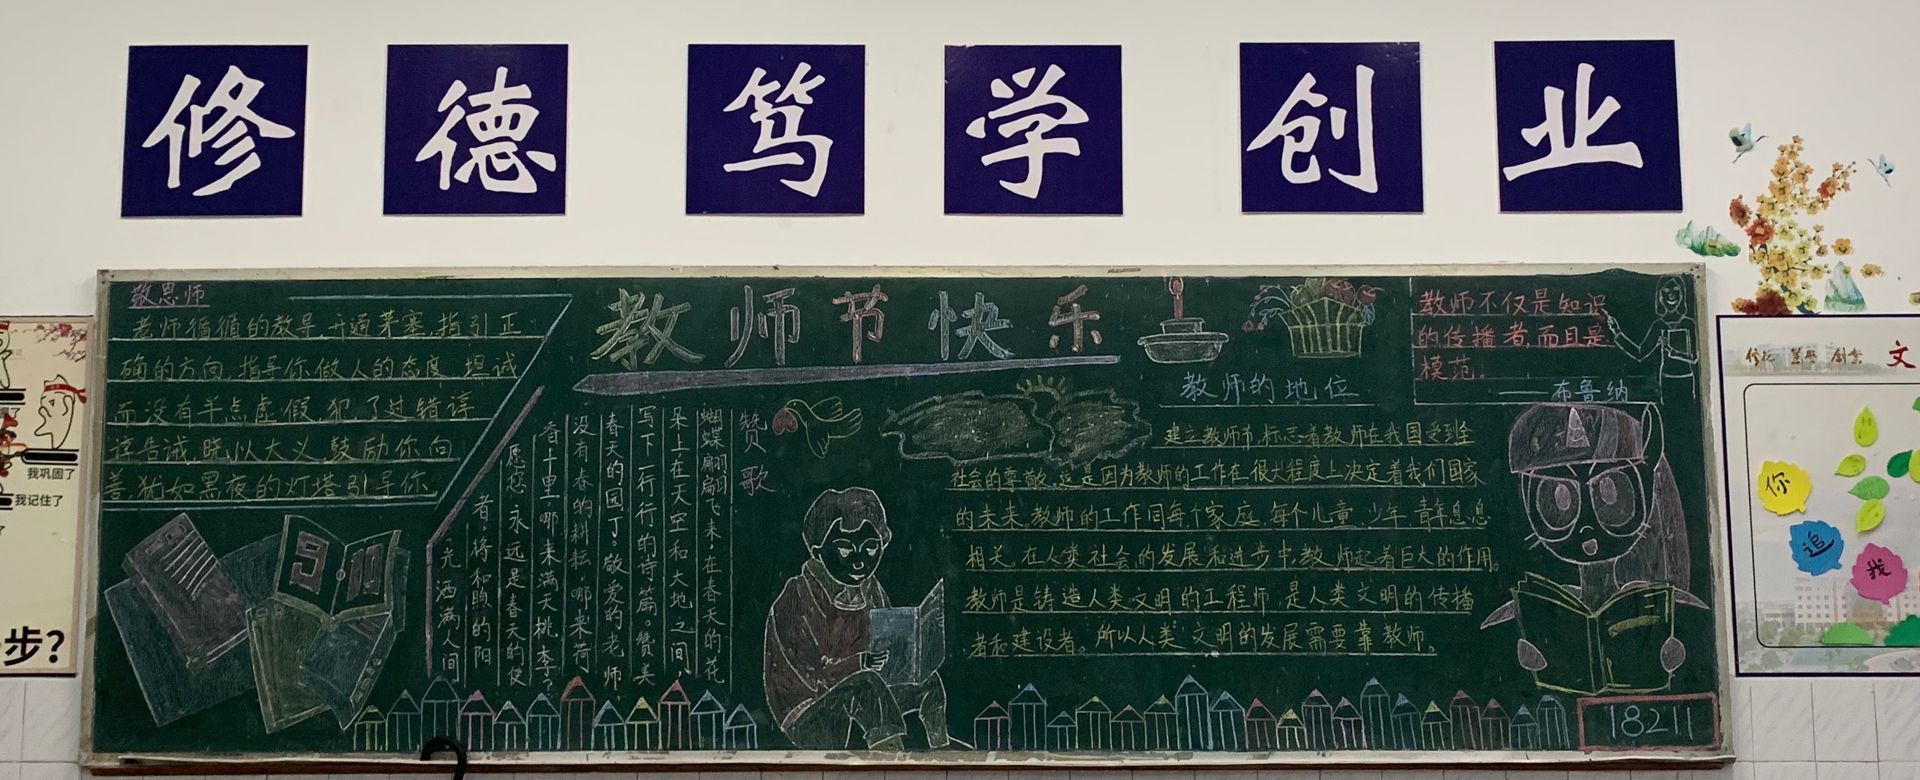 修德笃学创业
敬恩师
老师循循的教导,开通茅塞,指引正
确的方向,指导你做人的态度,坦诚
而没有半点虚假,犯了过错谆
谆告诫,晓以大义,鼓励你向
善,犹如黑夜的灯塔引导你。
910
教师节快乐
赞歌
蝴蝶翩翩飞来,在春天的花
朵上在天空和大地之间,
写下一行行的诗篇。赞美
春天的园丁。敬爱的老师,
没有春的耕耘,哪来荷
香十里哪来满天桃李?
愿您永远是春天的使
者,将和煦的阳
光洒满人间
教师的地位
建立教师节,标志着教师在我国受到全
社会的尊敬,这是因为教师的工作在很大程度上决定着我们国家
的未来。教师的工作同每个家庭,每个儿童,少年,青年息息
相关,在人类社会的发展和进步中,教师起着巨大的作用。
教师是铸造人类文明的工程师,是人类文明的传播
者和建设者。所以人类文明的发展需要靠教师。
教师不仅是知识
的传播者,而且是
模范。
——布鲁纳
18211
我巩固了
我记住了
步?
修德 笃学 创业
文
你
追
我